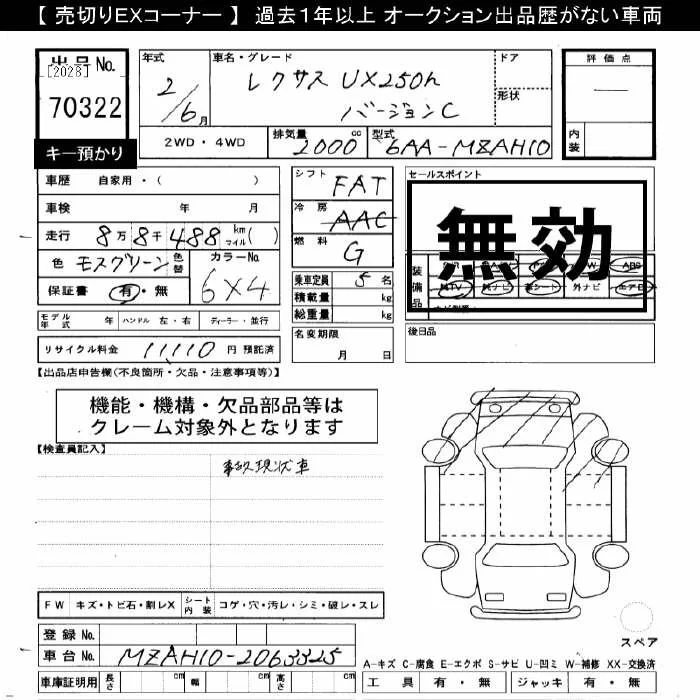 【 売切りEXコーナー 】 過去1年以上 オークション出品歴がない車両
出品 No.
[2028]
70322
キー預かり
年式
2/6月
車名・グレード
レクサス UX250h
バージョンC
ドア
形状
評価点
―
内装
2WD・4WD
排気量 2000 cc
型式 6AA-MZAH10
車歴 自家用・( )
車検 年 月
走行 8万8千488 km マイル( )
色 モスグリーン 色替
カラーNo. 6X4
保証書 有・無
シフト FAT
冷房 AAC
燃料 G
乗車定員 5名
積載量 kg
総重量 kg
セールスポイント
無効
装備品
純TV 純ナビ 革シート 外ナビ エアB
モデル年式 年 ハンドル 左・右 ディーラー・並行
リサイクル料金 11110 円 預託済
名変期限
月 日
後日品
【出品店申告欄(不良箇所・欠品・注意事項等)】
機能・機構・欠品部品等は
クレーム対象外となります
【検査員記入】
事故現状車
FW キズ・トビ石・割レX シート内装 コゲ・穴・汚レ・シミ・破レ・スレ
登録 No.
車台 No. MZAH10-2063325
車庫証明用 長さ cm 幅 cm 高さ cm
スペア
A-キズ C-腐食 E-エクボ S-サビ U-凹ミ W-補修 XX-交換済
工具 有・無 ジャッキ 有・無